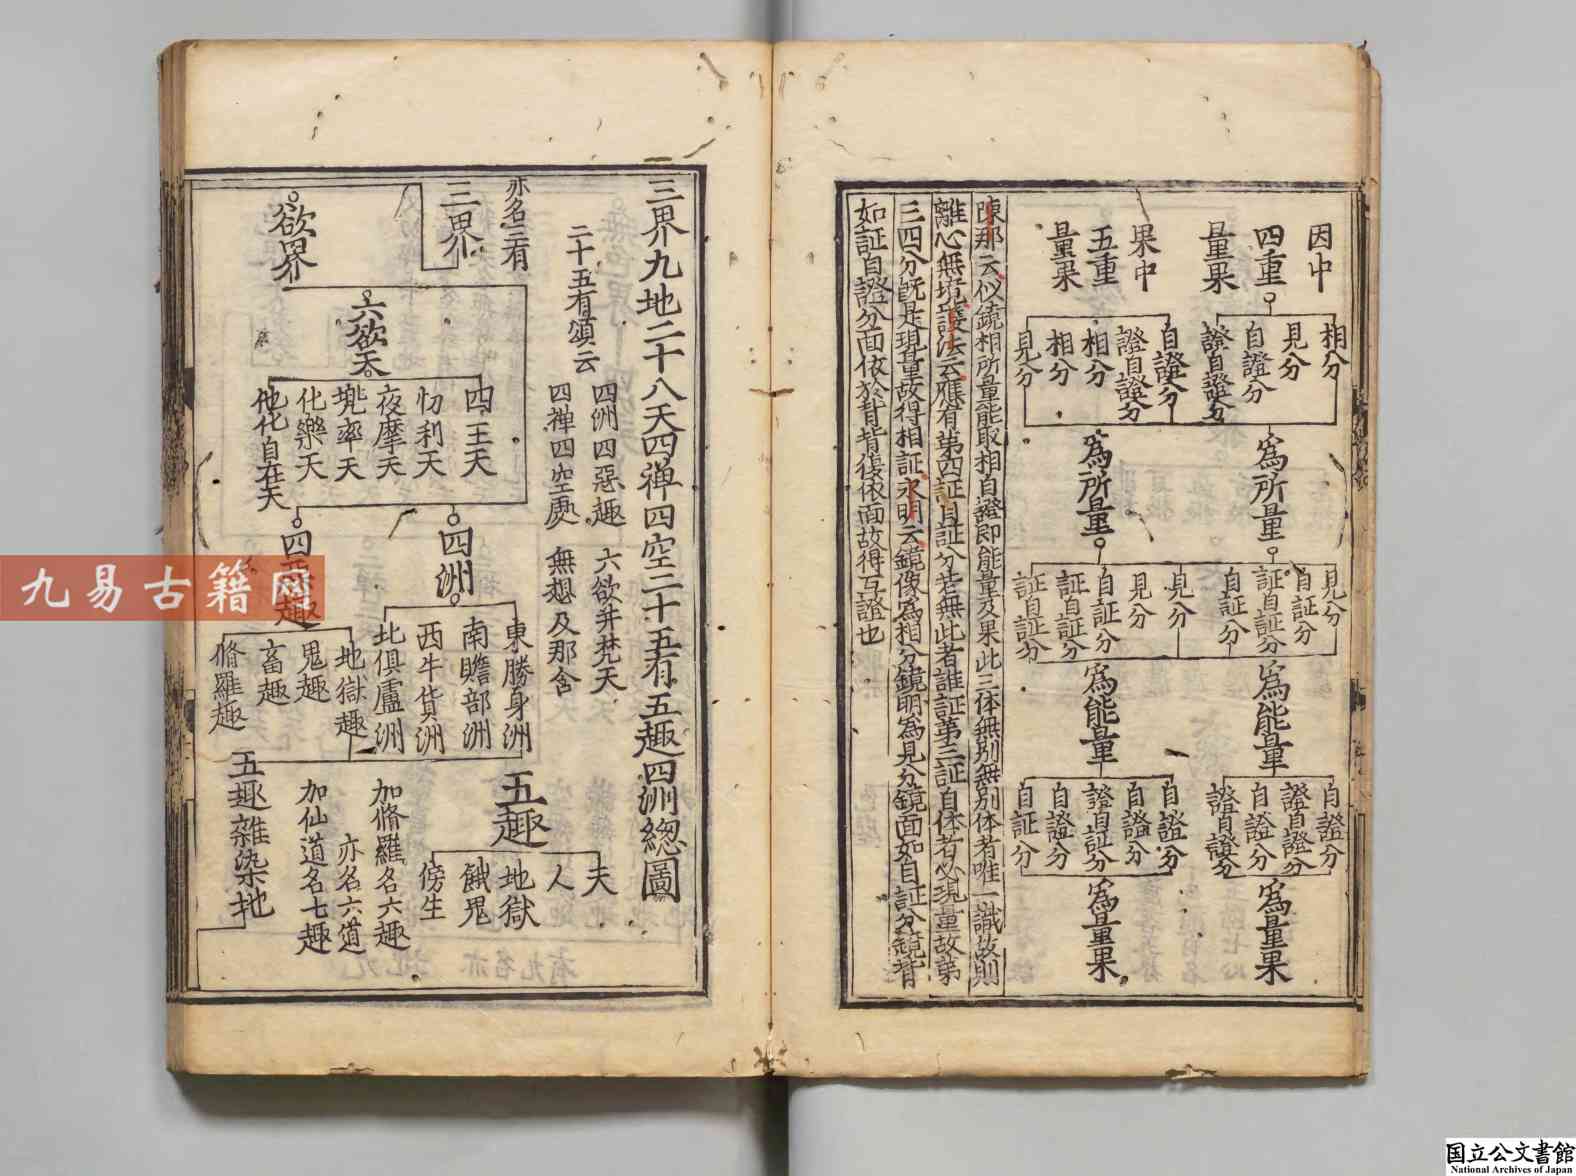 因中
四重
量果
果中
五重
量果
相分
見分
自證分
證自證分
自證分
證自證分
相分
相分
見分
為所量
為所量
見分
自証分
証自証分
自証分
見分
見分
自証分
証自証分
証自証分
為能量
為能量
自證分
證自證分
自證分
證自證分
自證分
自證分
證自証分
自證分
自証分
為量果
為量果
陳那云似鏡相所量能取相自證即能量及果此三体無別無別体者唯一識故則
離心無境護法云應有第四証自証分若無此者誰証第三証自体者必現量故第
三四分既是現量故得相証永明云鏡像為相分鏡明為見分鏡面如自証分鏡背
如証自證分面依於背背復依面故得互證也
三界九地二十八天四禅四空二十五有五趣四洲總圖
二十五有頌云
四洲四惡趣 六欲并梵天
四禅四空處 無想及那含
亦名三有
三界
欲界
六欲天
四王天
忉利天
夜摩天
兜率天
化樂天
他化自在天
四洲
東勝身洲
南贍部洲
西牛貨洲
北俱盧洲
四惡趣
地獄趣
鬼趣
畜趣
脩羅趣
五趣
天
人
地獄
餓鬼
傍生
加脩羅名六趣
亦名六道
加仙道名七趣
五趣雜染地
九易古籍网
国立公文書館
National Archives of Japan